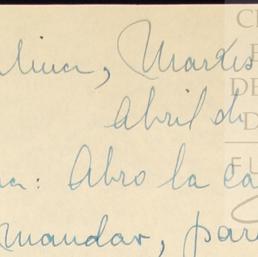 lina, Martes
Abril de
na: Abro la ca
mandar, par